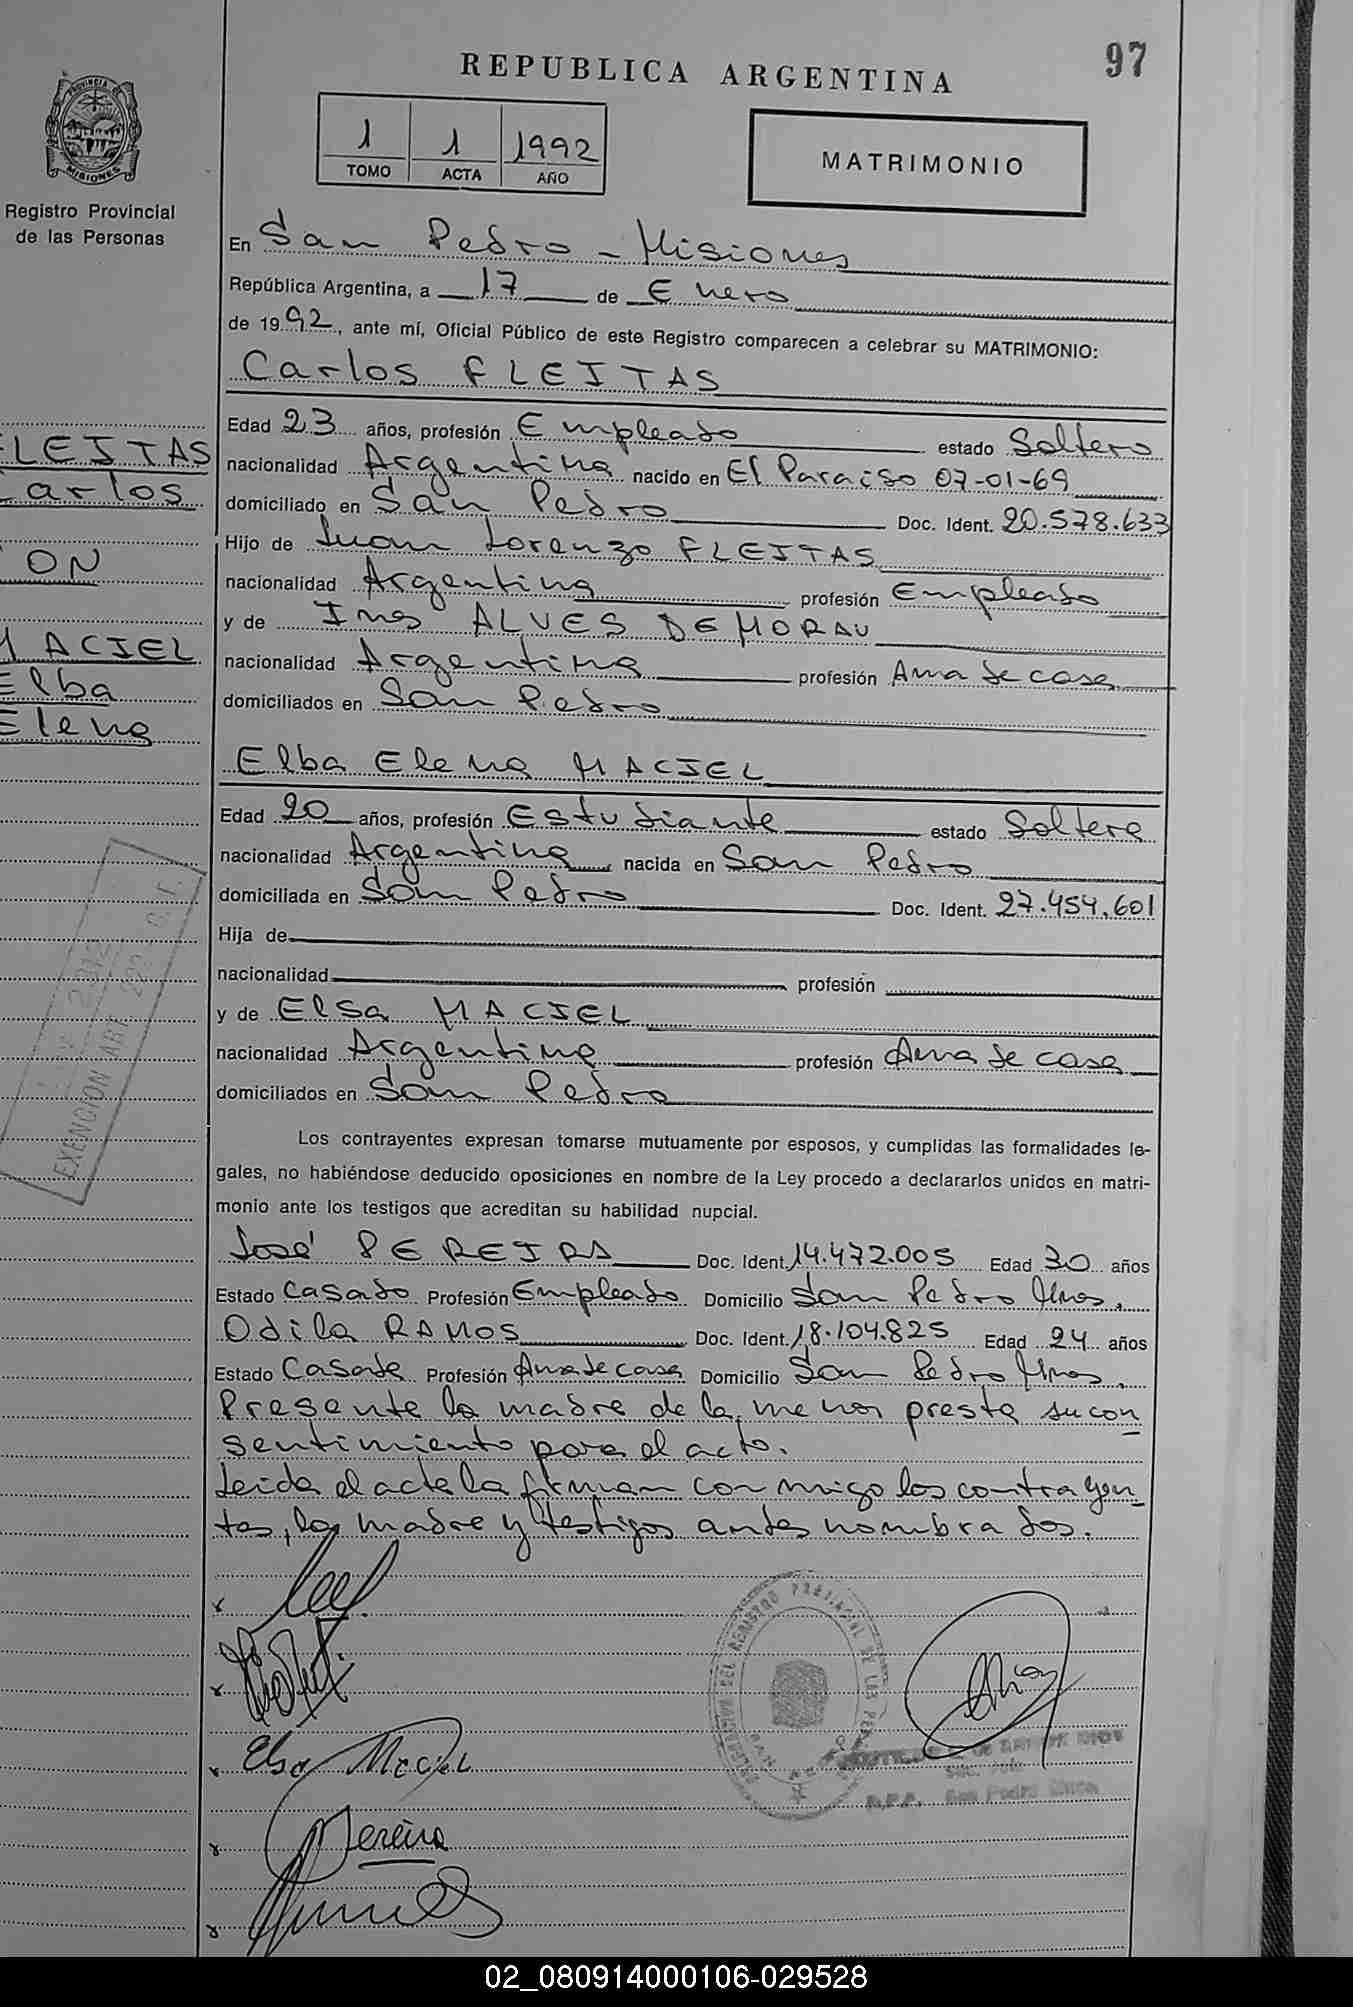 97
REPUBLICA ARGENTINA
PROVINCIA DE
MISIONES
1 1 1992
TOMO ACTA AÑO
MATRIMONIO
Registro Provincial
de las Personas
En San Pedro - Misiones
República Argentina, a 17 de Enero
de 1992, ante mí, Oficial Público de este Registro comparecen a celebrar su MATRIMONIO:
Carlos FLEITAS
Edad 23 años, profesión Empleado estado Soltero
nacionalidad Argentina nacido en El Paraiso 07-01-69
domiciliado en San Pedro Doc. Ident. 20.578.633
Hijo de Juan Lorenzo FLEITAS
nacionalidad Argentina profesión Empleado
y de Ines ALVES DEMORAU
nacionalidad Argentina profesión Ama de casa
domiciliados en San Pedro
Elba Elena MACIEL
Edad 20 años, profesión Estudiante estado Soltera
nacionalidad Argentina nacida en San Pedro
domiciliada en San Pedro Doc. Ident. 27.454.601
Hija de
nacionalidad profesión
y de Elsa MACIEL
nacionalidad Argentina profesión Ama de casa
domiciliados en San Pedro
Los contrayentes expresan tomarse mutuamente por esposos, y cumplidas las formalidades le-
gales, no habiéndose deducido oposiciones en nombre de la Ley procedo a declararlos unidos en matri-
monio ante los testigos que acreditan su habilidad nupcial.
José PEREIRA Doc. Ident. 14.472.005 Edad 30 años
Estado Casado Profesión Empleado Domicilio San Pedro Mnes.
Odila RAMOS Doc. Ident. 18.104.825 Edad 24 años
Estado Casada Profesión Ama de casa Domicilio San Pedro Mnes.
Presente la madre de la menor presta su con
sentimiento para el acto.
Leida el acta la firman conmigo los contrayen
tes, la madre y testigos antes nombrados.
Elsa Maciel
Pereira
R.P.P. San Pedro
LEITAS
Carlos
CON
MACIEL
Elba
Elena
EXENCION ART.
02_080914000106-029528